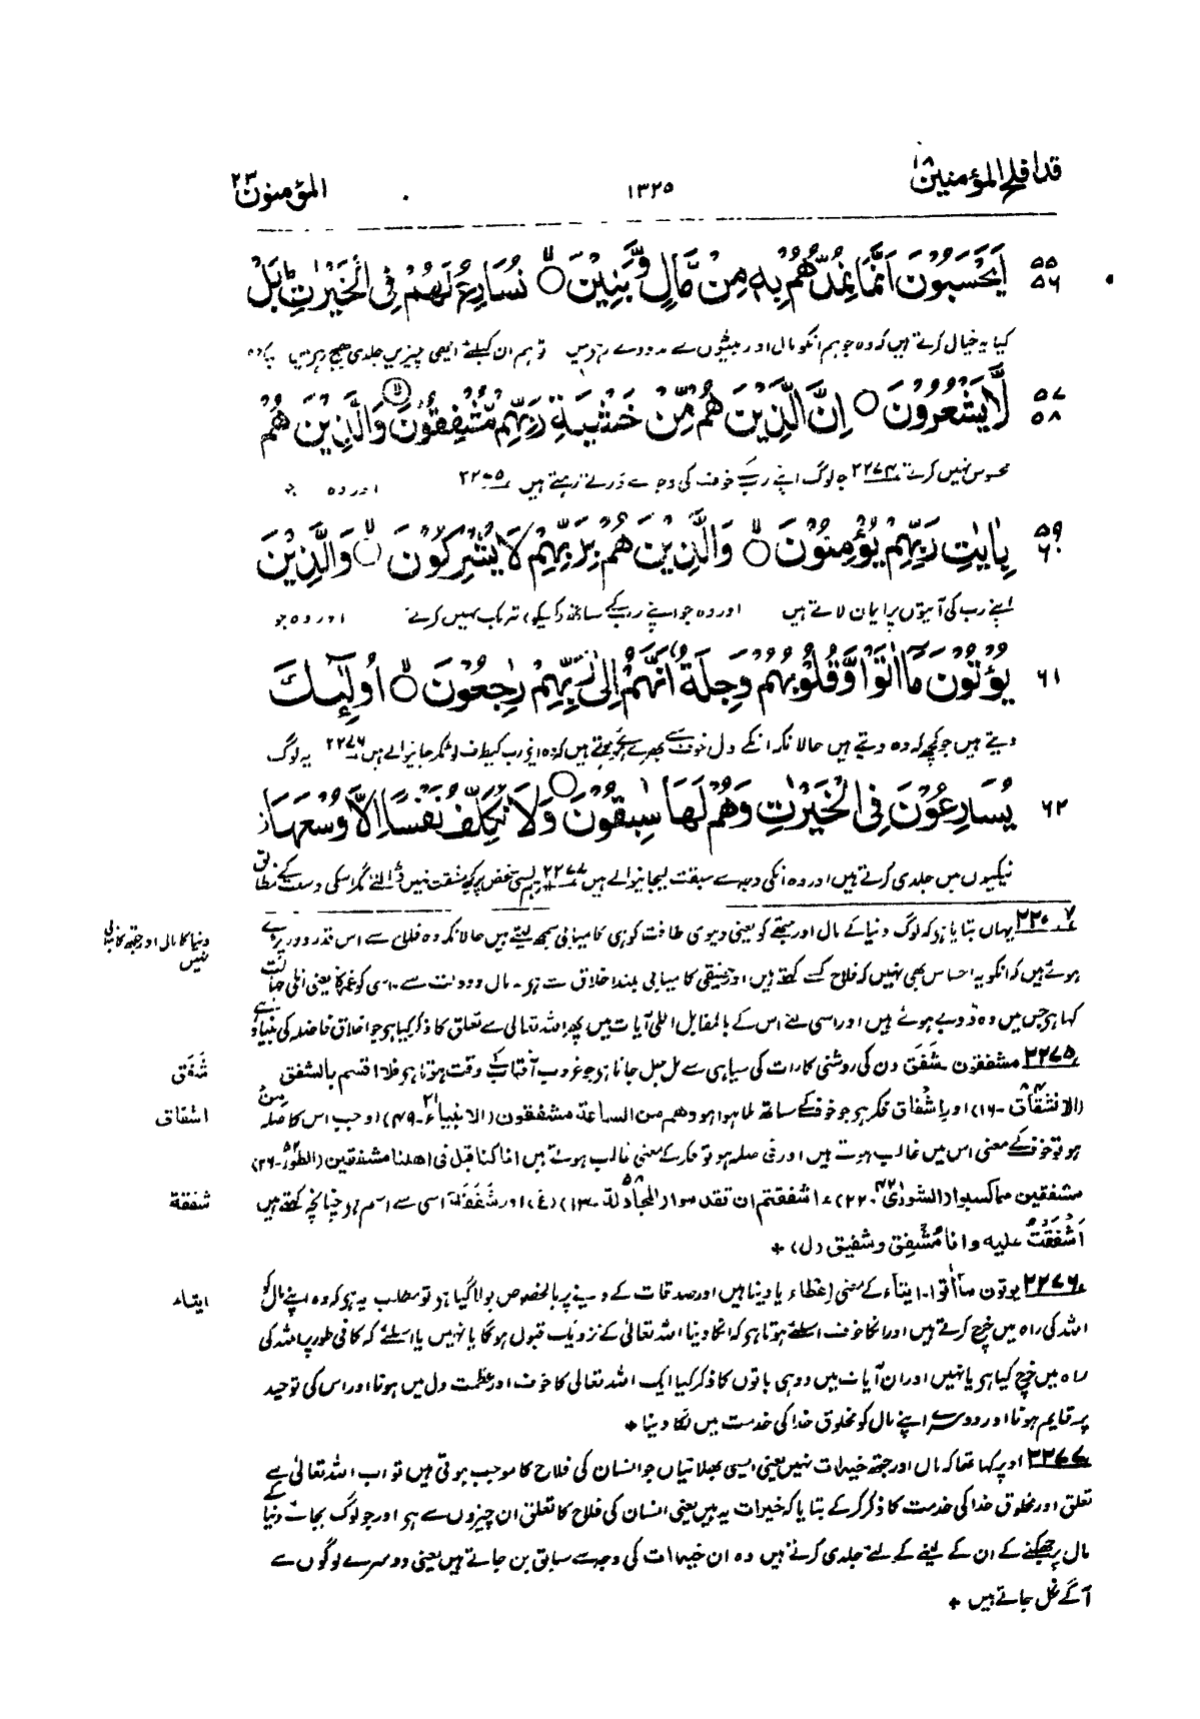 قد افلح المؤمنین ۱۸
۱۳۲۵
المؤمنون ۲۳
۵۵ ۵۶ اَیَحْسَبُوْنَ اَنَّمَا نُمِدُّهُمْ بِهٖ مِنْ مَّالٍ وَّبَنِیْنَ ۝ نُسَارِعُ لَهُمْ فِی الْخَیْرٰتِ ؕ بَلْ
کیا یہ خیال کرتے ہیں کہ وہ جو ہم انکو مال اور بیٹیوں سے مدد دے رہے ہیں تو ہم ان کیلئے اچھی چیزیں جلدی بھیج رہے ہیں بلکہ
۵۷ ۵۸ لَّا یَشْعُرُوْنَ ۝ اِنَّ الَّذِیْنَ هُمْ مِّنْ خَشْیَةِ رَبِّهِمْ مُّشْفِقُوْنَ ۝ وَالَّذِیْنَ هُمْ
محسوس نہیں کرتے ۲۲۷۴ جو لوگ اپنے رب کے خوف کی وجہ سے ڈرتے رہتے ہیں ۲۲۷۵ اور وہ جو
۵۹ ۶۰ بِاٰیٰتِ رَبِّهِمْ یُؤْمِنُوْنَ ۝ وَالَّذِیْنَ هُمْ بِرَبِّهِمْ لَا یُشْرِكُوْنَ ۝ وَالَّذِیْنَ
اپنے رب کی آیتوں پر ایمان لاتے ہیں اور وہ جو اپنے رب کے ساتھ (کسیکو) شریک نہیں کرتے اور وہ جو
۶۱ یُؤْتُوْنَ مَاۤ اٰتَوْا وَّقُلُوْبُهُمْ وَجِلَةٌ اَنَّهُمْ اِلٰی رَبِّهِمْ رٰجِعُوْنَ ۝ اُولٰٓئِكَ
دیتے ہیں جو کچھ کہ وہ دیتے ہیں حالانکہ انکے دل خوف سے بھرے ہوتے ہیں کہ وہ اپنے رب کیطرف لوٹکر جانیوالے ہیں ۲۲۷۶ یہ لوگ
۶۲ یُسَارِعُوْنَ فِی الْخَیْرٰتِ وَهُمْ لَهَا سٰبِقُوْنَ ۝ وَلَا نُكَلِّفُ نَفْسًا اِلَّا وُسْعَهَا
نیکیوں میں جلدی کرتے ہیں اور وہ انکی وجہ سے سبقت لیجانیوالے ہیں ۲۲۷۷ اور ہم کسی شخص پر کچھ مشقت نہیں ڈالتے مگر اسکی وسعت کے مطابق
یہاں بتایا ہے کہ لوگ دنیا کے مال اور جتھے کو یعنی دنیوی طاقت کو ہی کامیابی سمجھ لیتے ہیں حالانکہ وہ فلاح سے اس قدر دور پڑے
دنیا کا مال اور جتھہ کامیابی نہیں
ہوئے ہیں کہ انکو یہ احساس بھی نہیں کہ فلاح کسے کہتے ہیں اور حقیقی کامیابی بلند اخلاق سے ہے۔ مال و دولت سے۔ اسی کو غمرۃ یعنی انکی جہالت
کہا ہے جس میں وہ ڈوبے ہوئے ہیں اور اسی لئے اس کے بالمقابل اگلی آیات میں پھر اللہ تعالیٰ سے تعلق کا ذکر کیا ہے جو اخلاق فاضلہ کی بنیاد ہے
۲۲۷۵ مشفقون۔ شَفَق دن کی روشنی کا رات کی سیاہی سے مل جل جانا ہے جو غروب آفتاب کے وقت ہوتا ہے فلا اقسم بالشفق
شَفَق
(الانشقاق ۸۴۔۱۶) اور اِشفاق فکر ہے جو خوف کے ساتھ ملا ہوا ہو وھم من الساعۃ مشفقون (الانبیاء ۲۱۔۴۹) اور جب اس کا صلہ من
اشفاق
ہو تو خوف کے معنی اس میں غالب ہوتے ہیں اور فی صلہ ہو تو فکر کے معنی غالب ہوتے ہیں انا کنا قبل فی اھلنا مشفقین (الطور ۵۲۔۲۶)
مشفقین مما کسبوا (الشوریٰ ۴۲۔۲۲) ءاشفقتم ان تقدموا (المجادلۃ ۵۸۔۱۳) (غ) اور شَفَقَۃ اسی سے اسم ہے چنانچہ کہتے ہیں
شفقة
اَشْفَقْتُ علیہ وانا مُشْفِق وشفیق (ل) +
۲۲۷۶ یوتون مآ اٰتوا۔ ایتآء کے معنی اِعْطاء یا دینا ہیں اور صدقات کے دینے پر بالخصوص بولا گیا ہے تو مطلب یہ ہے کہ وہ اپنے مال کو
ایتاء
اللہ کی راہ میں خرچ کرتے ہیں اور انکا خوف اسلئے ہوتا ہے کہ انکا دینا اللہ تعالیٰ کے نزدیک قبول ہوگا یا نہیں یا اسلئے کہ کافی طور پر اللہ کی
راہ میں خرچ کیا ہے یا نہیں اور ان آیات میں دو ہی باتوں کا ذکر کیا ایک اللہ تعالیٰ کا خوف اور عظمت دل میں ہونا اور اس کی توحید
پر قایم ہونا اور دوسرے اپنے مال کو مخلوق خدا کی خدمت میں لگا دینا +
۲۲۷۷ اوپر کہا تھا کہ مال اور جتھہ خیرات نہیں یعنی ایسی بھلائیاں جو انسان کی فلاح کا موجب ہوتی ہیں تو اب اللہ تعالیٰ سے
تعلق اور مخلوق خدا کی خدمت کا ذکر کرکے بتایا کہ خیرات یہ ہیں یعنی انسان کی فلاح کا تعلق ان چیزوں سے ہے اور جو لوگ بجائے دنیا کے
مال پر جھکنے کے ان کے لینے کے لئے جلدی کرتے ہیں وہ ان خیرات کی وجہ سے سابق بن جاتے ہیں یعنی دوسرے لوگوں سے
آگے نکل جاتے ہیں +